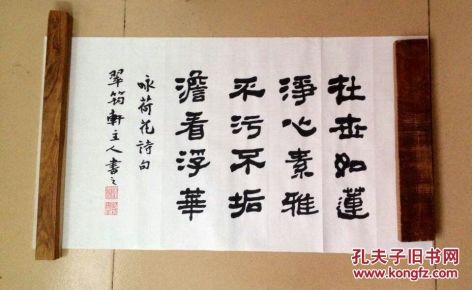 在世如蓮
淨心素雅
不污不垢
澹看浮華
咏荷花詩句
翠筠軒主人書之
孔夫子旧书网
www.kongfz.com